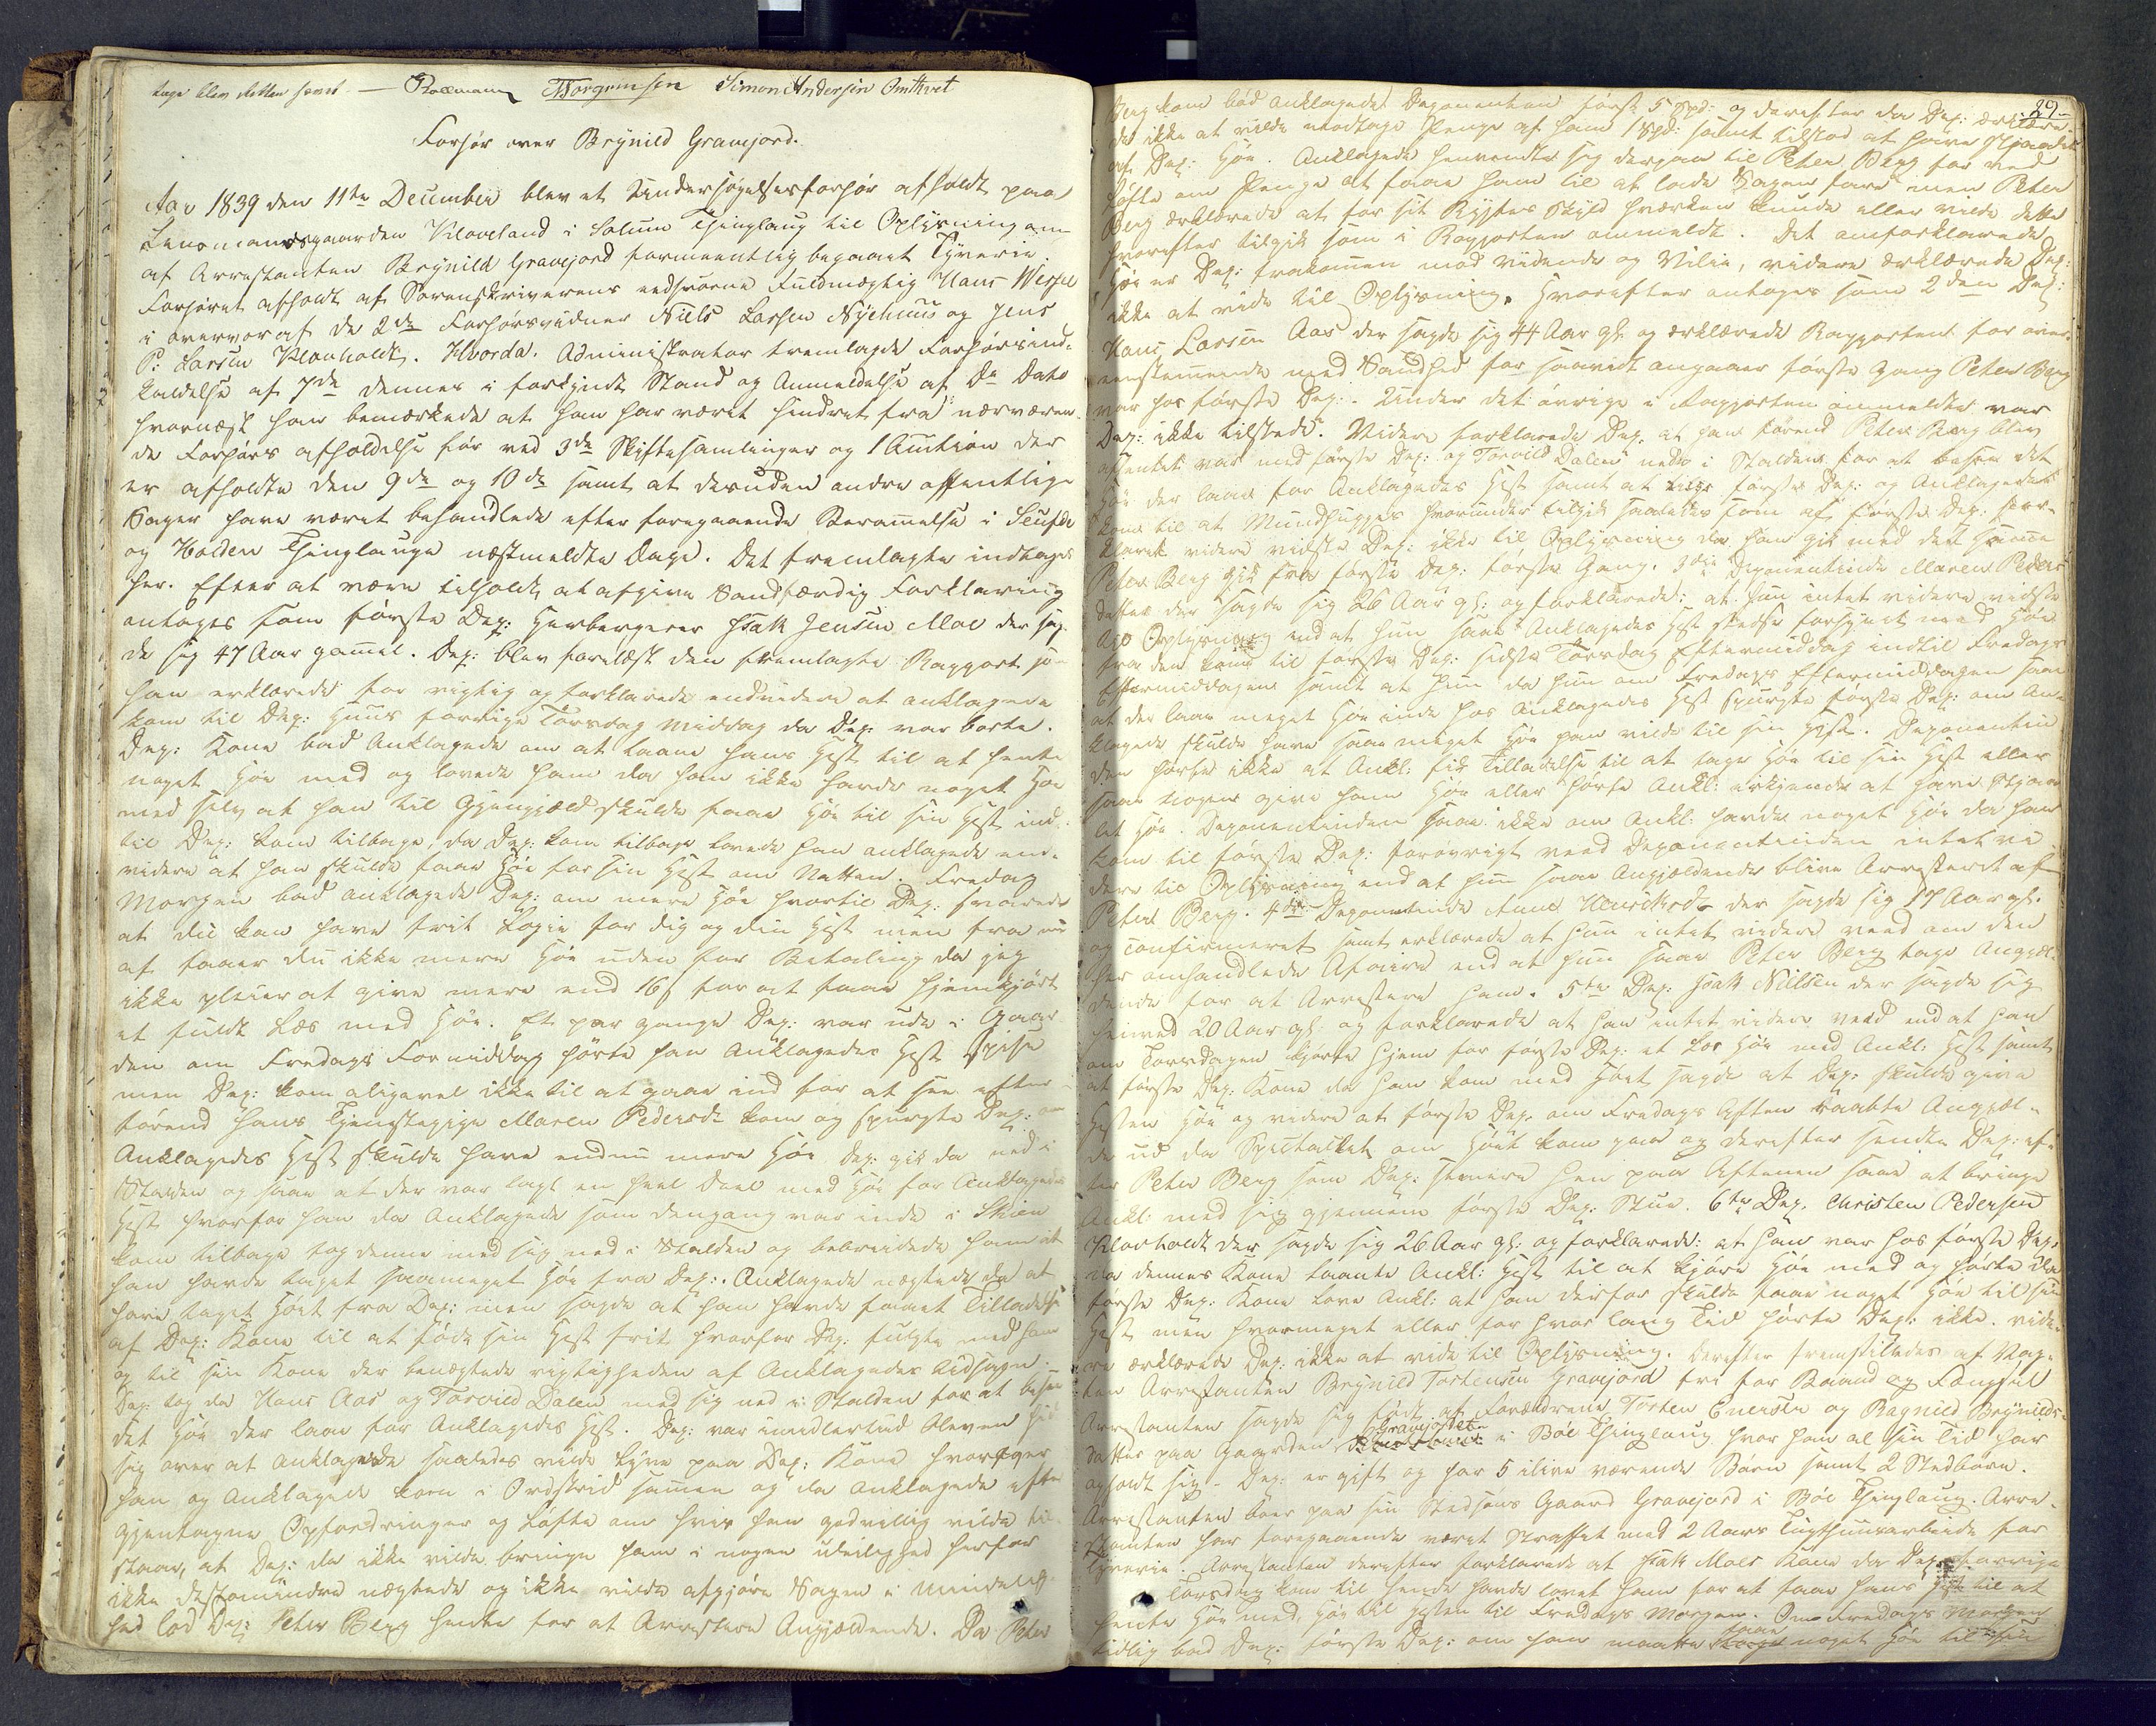 tage blev Retten hævet — Rollmann Thorgrimsen Simon Andersen Omthvet
Forhør over Brynild Gravejord.
Aar 1839 den 11te December blev et Undersøgelsesforhør afholdt paa
Lensmandsgaarden Kloveland i Solum Thinglaug til Oplysning om
af Arrestanten Brynild Gravejord formeentlig begaaet Tyverie.
Forhøret afholdt af Sorenskriverens eedsvorne Fuldmægtig Hans Wessel
i overvær af de 2de Forhørsvidner Niels Larsen Nyehuus og Jens
P. Larsen Klovholdt. Hvorda. Administrator fremlagde Forhørsind-
kaldelse af 7de dennes i forkyndt Stand og Anmeldelse af Do Dato
hvornæst han bemærkede at han har været hindret fra nærværen-
de Forhørs afholdelse før ved 3de Skiftesamlinger og 1 Auction der
er afholdte den 9de og 10de samt at desuden andre offentlige
Sager have været behandlede efter foregaaende Berammelse i
og Holden Thinglauge næstmeldte Dage. Det fremlagte indtages
her. Efter at være tilholdt at afgive Sandfærdig Forklaring
antoges som første Dep: Herbergerer Isak Jensen Moe der sag-
de sig 47 Aar gammel. Dep: blev forelæst den fremlagte Rapport som
han erklærede for rigtig og forklarede endvidere at anklagede
kom til Dep: Huus forrige Torsdag Middag da Dep: var borte.
Dep: Kone bad Anklagede om at laane hans Hest til at hente
noget Høe med og lovede ham da han ikke havde noget Høe
med selv at han til Gjengjæld skulde faae Høe til sin Hest ind-
til Dep: kom tilbage; da Dep: kom tilbage lovede han anklagede end-
videre at han skulde faae Høe for sin Hest om Natten. Fredag
Morgen bad anklagede Dep: om mere Høe hvortil Dep: svarede
at du kan have frit Logie for dig og din Hest men fra nu
af faaer du ikke mere Høe uden for Betaling da jeg
ikke pleier at give mere end 16 s for at faae hjemkjørt
et fuldt Læs med Høe. Et par gange Dep: var ude i Gaar-
den om Fredags Formiddag hørte han Anklagedes Hest spise
men Dep: kom aligevel ikke til at gaae ind for at see efter
førend hans Tjenestepige Maren Pedersdr kom og spurgte Dep: om
Anklagedes Hest skulde have endnu mere Høe Dep: gik da ned i
Stalden og saae at der var lagt en heel Deel med Høe for Anklagedes
Hest hvorfor han da Anklagede som dengang var inde i Skien
kom tilbage tog denne med sig ned i Stalden og bebreidede ham at
han havde taget saameget Høe fra Dep:. Anklagede nægtede da at
have taget Høet fra Dep: men sagde at han havde faaet Tilladelse
af Dep: Kone til at føde sin Hest frit hvorfor Dep: fulgte med ham
op til sin Kone der benægtede rigtigheden af Anklagedes Udsagn.
Dep: tog da Hans Aas og Torvild Dalen med sig ned i Stalden for at besee
det Høe der laae for Anklagedes Hest. Dep: var imidlertid bleven
sig over at Anklagede saaledes vilde lyve paa Dep: Kone hvorover
han og Anklagede kom i Ordstrid sammen og da Anklagede efter
gjentagne Opfordringer og Løfte om hvis han godvillig vilde til-
staae, at Dep: da ikke vilde bringe ham i nogen uleilighed herfor
ikke destomindre nægtede og ikke vilde afgjøre Sagen i Mindelig-
hed lod Dep: Peter Berg hente for at Arrestere Angjældende. Da Peter
29
Berg kom bød anklagede Deponenten først 5 Spd: og derefter da Dep: erklære-
de ikke at vilde modtage Penge af ham 1 Spd: samt tilstod at have stjaalet
af Dep: Høe. Anklagede henvendte sig derpaa til Peter Berg for ved
Løfte om Penge at faae ham til at lade Sagen fare men Peter
Berg erklærede at for sit Rygtes Skyld hverken kunde eller vilde dette
hvorefter tilgik som i Rapporten anmeldt. Det omforklarede
Høe er Dep: frakommen mod vidende og Vilie, videre erklærede Dep:
ikke at vide til Oplysning. Hvorefter antoges som 2den Dep:
Hans Larsen Aas der sagde sig 44 Aar gl. og erklærede Rapporten for over-
eensstemmende med Sandhed for saavidt angaaer første Gang Peter Berg
var hos første Dep:. Under det øvrige i Rapporten anmeldte var
Dep: ikke tilstede. Videre forklarede Dep: at han førend Peter Berg blev
afhentet var med første Dep: og Torvild Dalen nede i Stalden for at besee det
Høe der laae for Anklagedes Hest samt at første Dep: og Anklagede
kom til at Mundhugges hvorunder tilgik saaledes som af første Dep: for-
klaret videre vidste Dep: ikke til Oplysning da han gik med det samme
Peter Berg gik fra første Dep: første Gang. 3die Deponentinde Maren Peders
datter der sagde sig 26 Aar gl: og forklarede: at hun intet videre vidste
til Oplysning end at hun saae Anklagedes Hest stedse forsynet med Høe
fra den kom til første Dep: sidste Torsdag Eftermiddag indtil Fredags
Eftermiddagen samt at hun da hun om Fredags Eftermiddagen saae
at der laae meget Høe inde hos Anklagedes Hest spurgte første Dep: om An-
klagede skulde have saa meget Høe han vilde til sin Hest. Deponentin
den hørte ikke at Ankl: fik Tilladelse til at tage Høe til sin Hest eller
saae nogen give ham Høe eller hørte Ankl: erkjende at have stjaa-
let Høe. Deponentinden saae ikke om Ankl: havde noget Høe da han
kom til første Dep: forøvrigt veed Deponentinden intet vi-
dere til Oplysning end at hun saae Angjældende blive Arresteret af
Peter Berg. 4de Deponentinde Anne Henrichsdr der sagde sig 17 Aar gl.
og confirmeret samt erklærede at hun intet videre veed om den
her omhandlede Afaire end at hun saae Peter Berg tage Angjæl-
dende for at Arrestere ham. 5te Dep: Isak Nielsen der sagde sig
henved 20 Aar gl og forklarede at han intet videre veed end at han
om Torsdagen kjørte hjem for første Dep: et Læs Høe med Ankl: Hest samt
at første Dep: Kone da han kom med Høet, sagde at Dep: skulde give
Hesten Høe og videre at første Dep. om Fredags Aften raabte Angjæl-
de ud da Spectaklet om Høet kom paa og derefter sendte Dep: ef-
ter Peter Berg som Dep: senere hen paa Aftenen saae at bringe
Ankl: med sig gjennem første Dep: Stue. 6te Dep. Christen Pedersen
Klovholdt der sagde sig 26 Aar gl: og forklarede: at han var hos første Dep:
da dennes Kone laante Ankl: Hest til at kjøre Høe med og hørte da
første Dep: Kone love Ankl: at han derfor skulde faae noget Høe til sin
Hest men hvormeget eller for hvor lang Tid hørte Dep: ikke. vide-
re erklærede Dep: ikke at vide til Oplysning. Derefter fremstilledes af Vag-
ten Arrestanten Brynild Tostensen Gravejord fri for Baand og Fængsel
Arrestanten sagde sig født af Forældrene Tosten Enersen og Ragnild Brynilds-
datter paa Gaarden i Bøe Thinglaug hvor han al sin Tid har
opholdt sig. Dep: er gift og har 5 ilive værende Børn samt 2 Stedbørn.
Arrestanten boer paa sin Stedsøns Gaard Gravejord i Bøe Thinglaug. Arre-
stanten har foregaaende været straffet med 2 Aars Tugthuusarbeide for
Tyverie. Arrestanten derefter forklarede at Isak Moes Kone da Dep: forrige
Torsdag kom til hende havde lovet ham for at faae hans Hest til at
hente Høe med, Høe til Hesten til Fredags Morgen. Om Fredags Morgen
tidlig bad Dep: første Dep: om han maatte faae noget Høe til sin